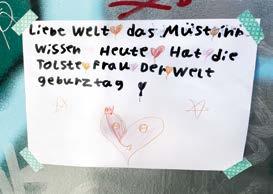 Liebe Welt das Müst ihr
Wissen Heute Hat die
Tolste Frau Der Welt
geburztag !